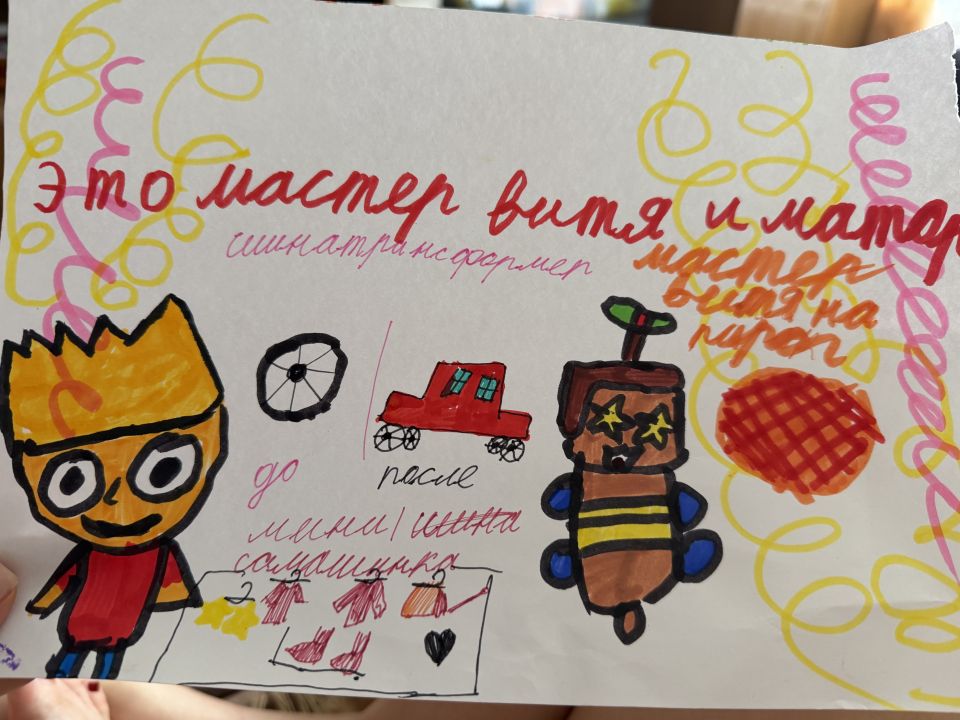 это мастер витя и матер
шинатрансформер
мастер
витя на
пирог
до
после
мини/шина
самашинка
2 2 2 2